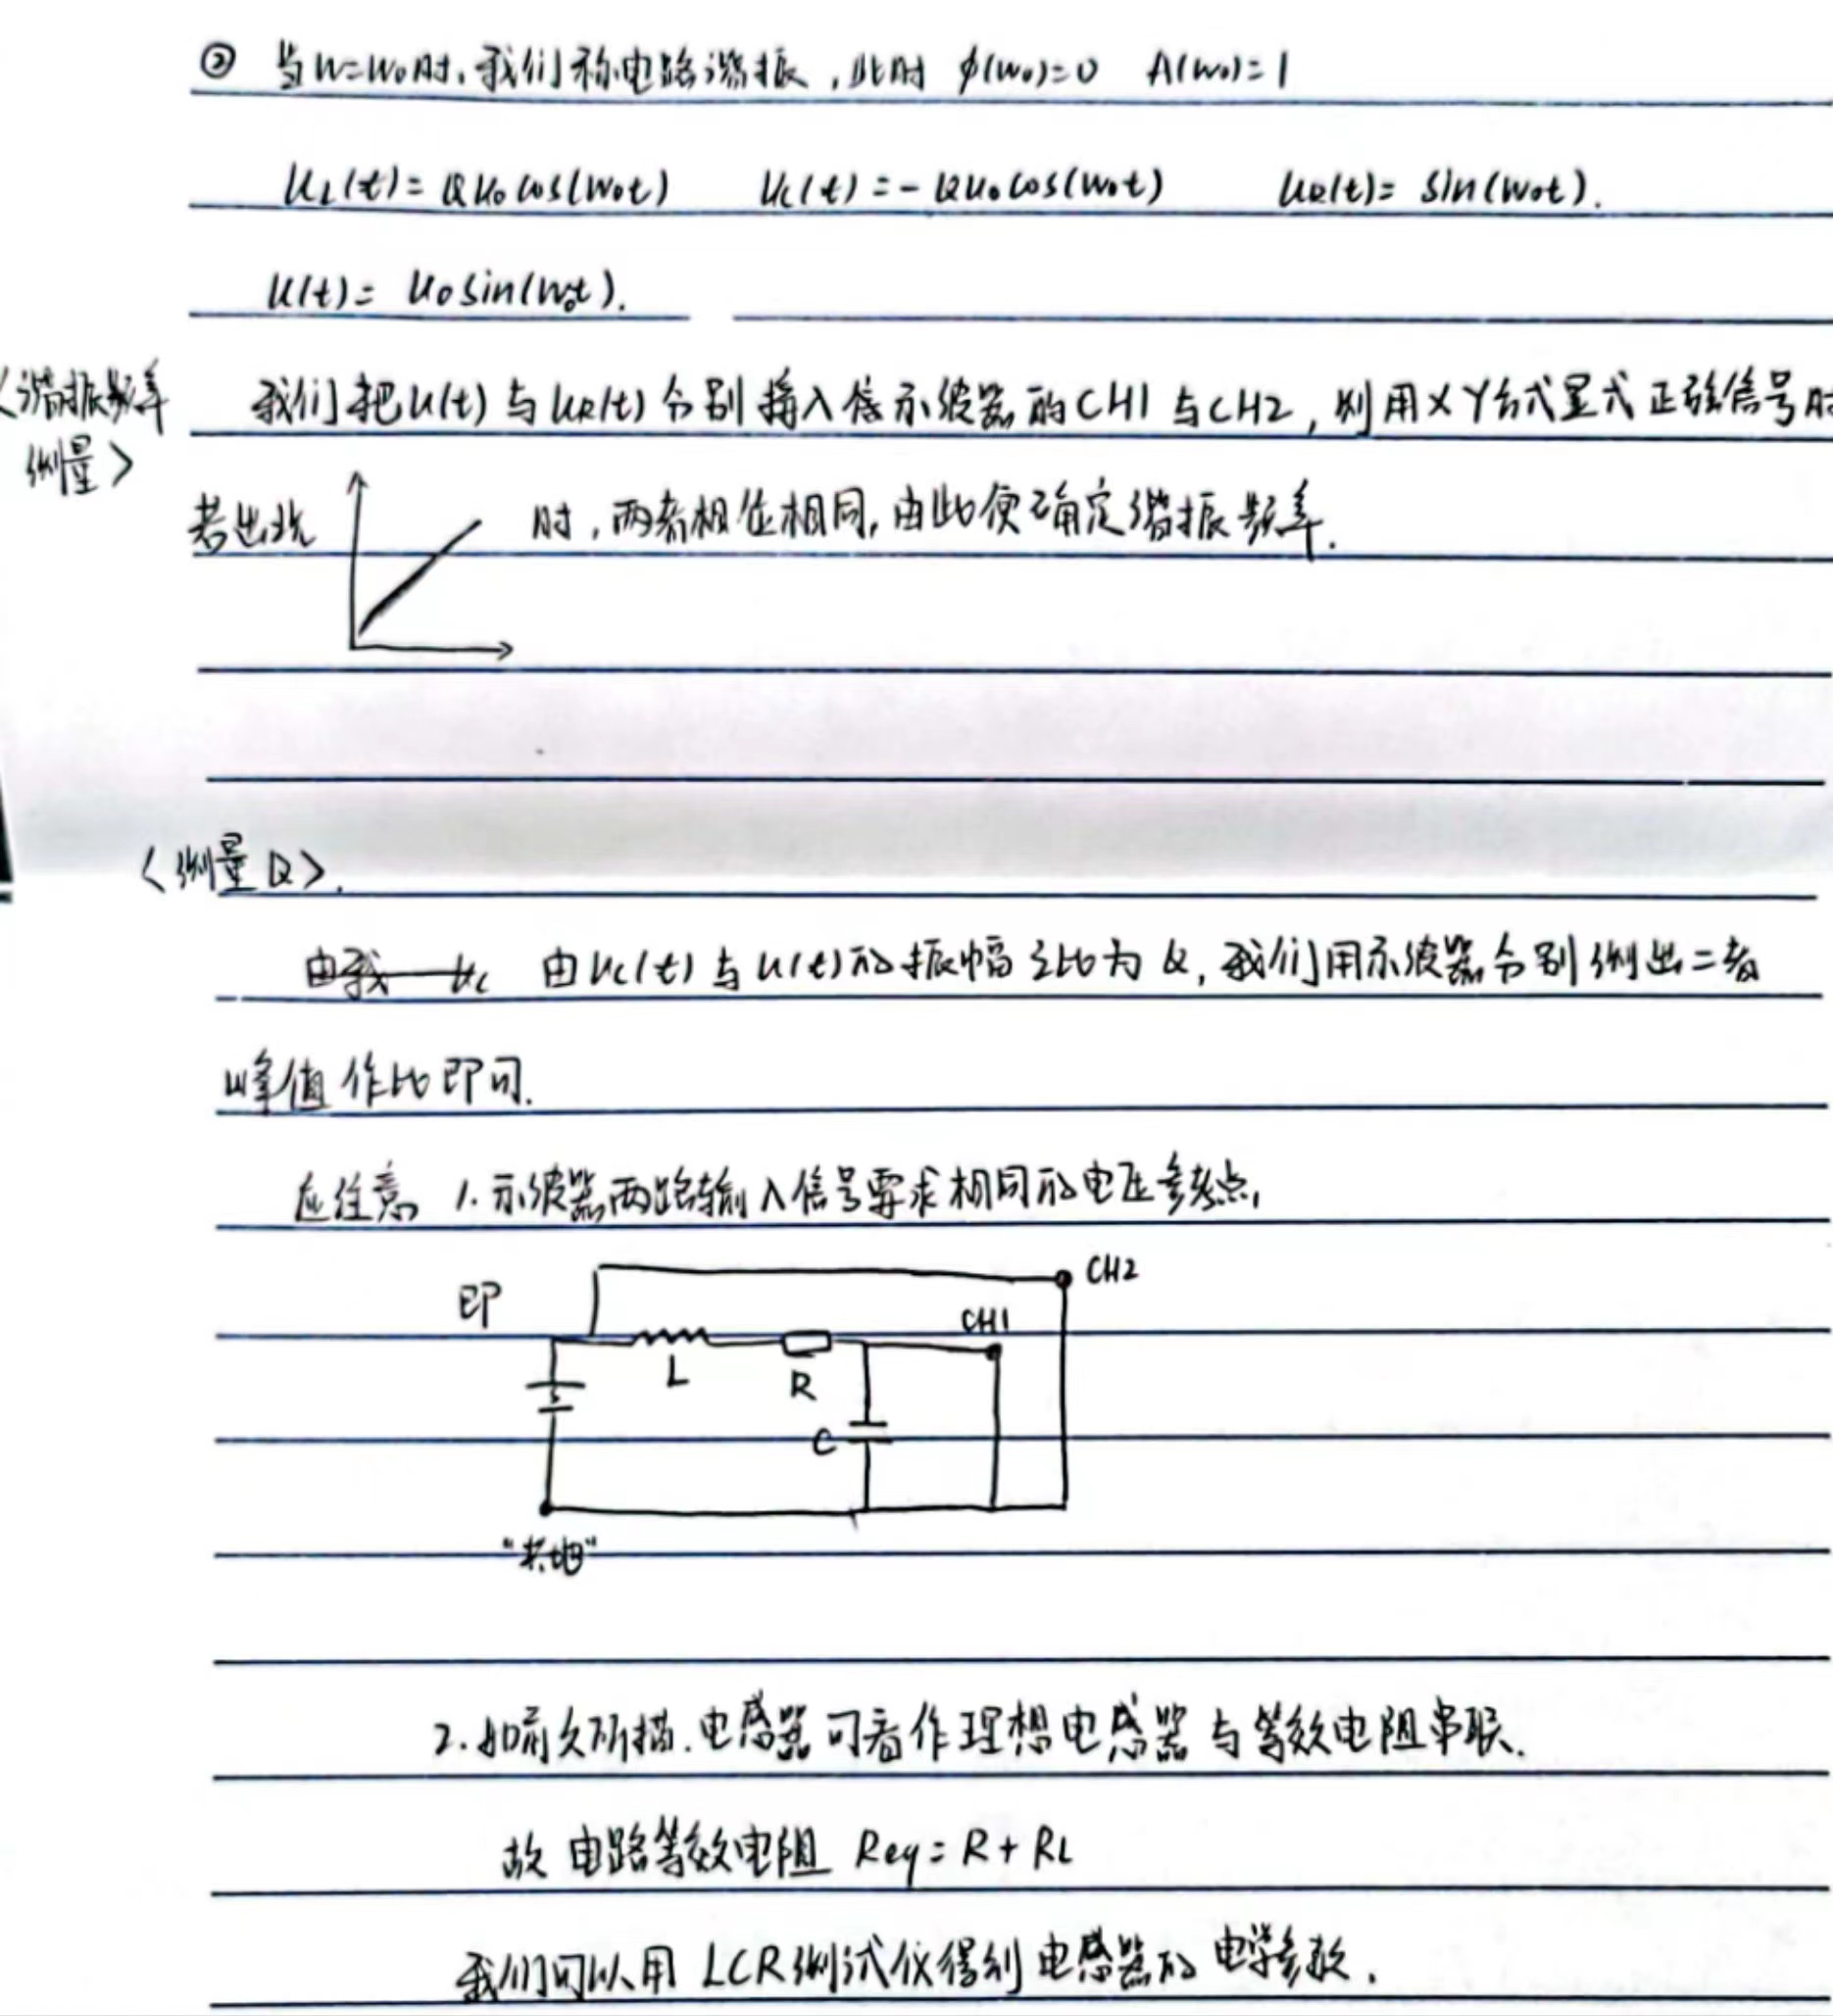 ② 当w=w₀时,我们称电路谐振,此时 φ(w₀)=0 A(w₀)=1
u_L(t)=Qu₀cos(w₀t) u_C(t)=-Qu₀cos(w₀t) u_R(t)=sin(w₀t).
u(t)=u₀sin(w₀t).
<谐振频率
测量>
我们把u(t)与u_R(t)分别接入示波器的CH1与CH2,利用XY方式显式正弦信号时
若出现 时,两者相位相同,由此便确定谐振频率.
<测量Q>.
由我 u_C 由u_C(t)与u(t)的振幅之比为Q,我们用示波器分别测出二者
峰值作比即可.
应注意 1.示波器两路输入信号要求相同的电压参考点,
即
CH2
CH1
L R
C
"共地"
2.如前文所描.电感器可看作理想电感器与等效电阻串联.
故电路等效电阻 Req=R+R_L
我们可以用LCR测试仪得到电感器的电学参数.